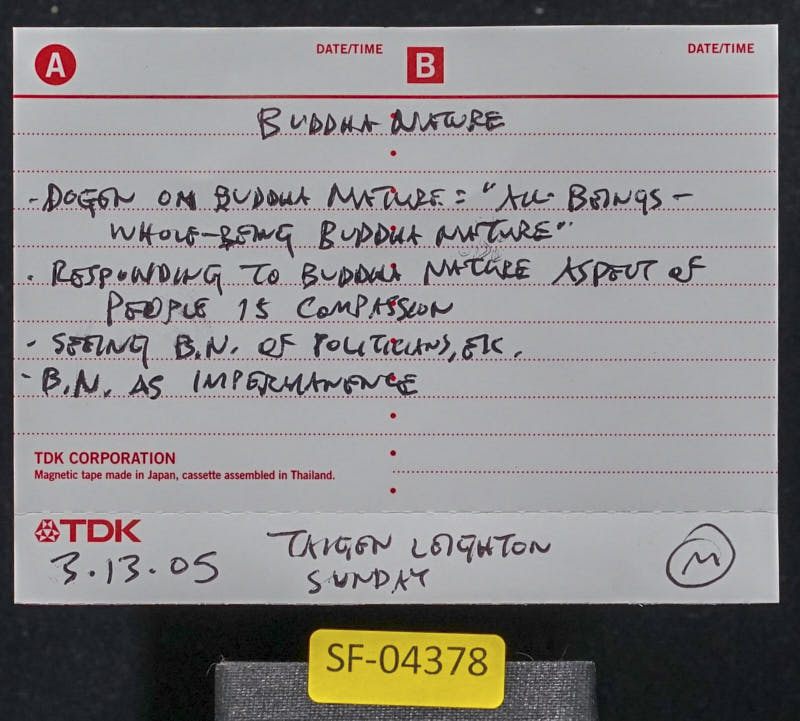 A DATE/TIME B DATE/TIME
BUDDHA NATURE
- DOGEN ON BUDDHA NATURE = "ALL BEINGS -
WHOLE-BEING BUDDHA NATURE"
· RESPONDING TO BUDDHA NATURE ASPECT OF
PEOPLE IS COMPASSION
- SEEING B.N. OF POLITICIANS, ETC.
- B.N. AS IMPERMANENCE
TDK CORPORATION
Magnetic tape made in Japan, cassette assembled in Thailand.
TDK
3.13.05
TAIGEN LEIGHTON
SUNDAY
M
SF-04378